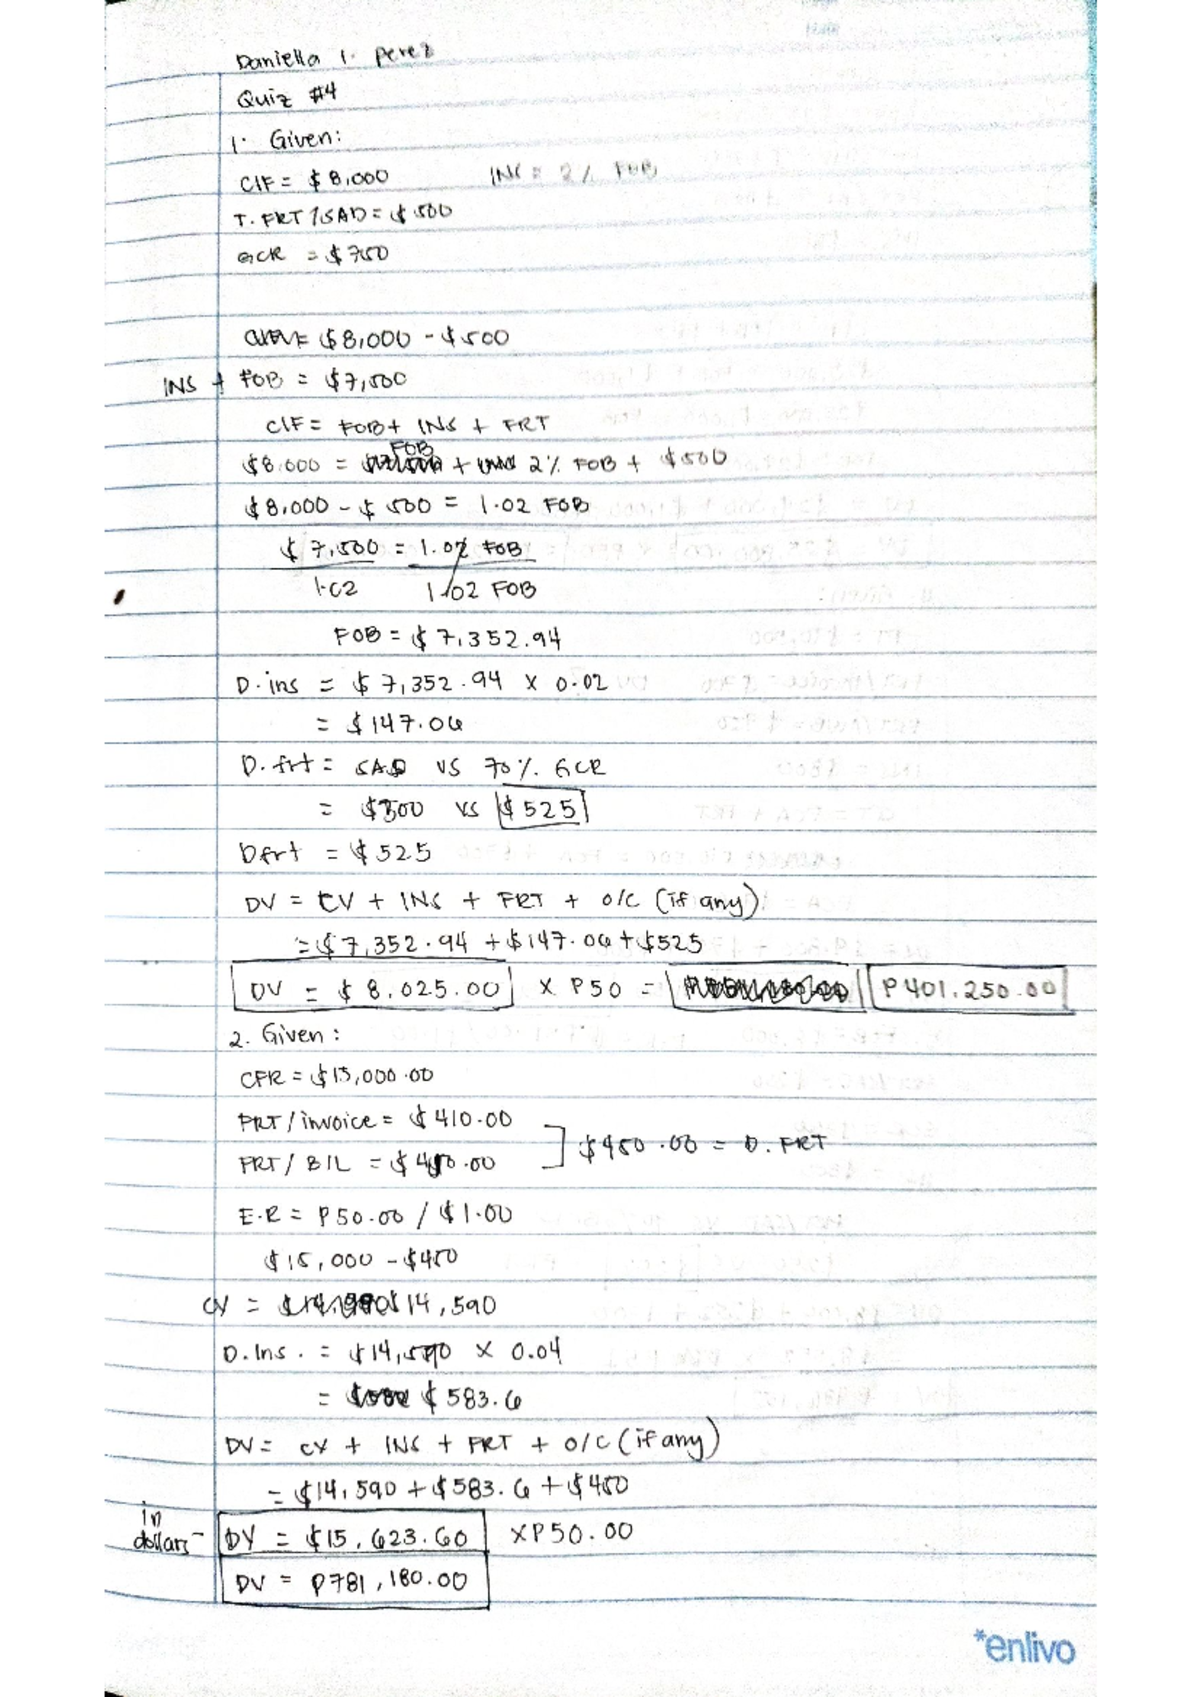 Daniella I. Perez
Quiz #4
1. Given:
CIF = $8,000 INS = 2% FOB
T. FRT/SAD = $500
GCR = $750
$8,000 - $500
INS + FOB = $7,500
CIF = FOB + INS + FRT
$8,000 = FOB + 2% FOB + $500
$8,000 - $500 = 1.02 FOB
$7,500 = 1.02 FOB
1.02 1.02 FOB
FOB = $7,352.94
D.ins = $7,352.94 x 0.02
= $147.06
D.frt = SAD VS 70% GCR
= $500 VS $525
Dfrt = $525
DV = CV + INS + FRT + O/C (if any)
= $7,352.94 + $147.06 + $525
DV = $8,025.00 x P50 = P401,250.00
2. Given:
CFR = $15,000.00
FRT/invoice = $410.00
$450.00 = D. FRT
FRT/B/L = $450.00
E.R = P50.00 / $1.00
$15,000 - $450
CV = $14,590
D.Ins. = $14,590 x 0.04
= $583.6
DV = CV + INS + FRT + O/C (if any)
= $14,590 + $583.6 + $450
in dollars - DV = $15,623.60 XP50.00
DV = P781,180.00
*enlivo